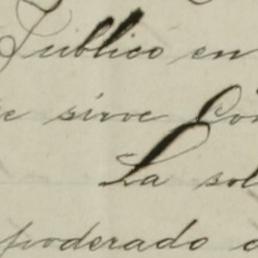 Público en
e sirve Con
La sol
poderado